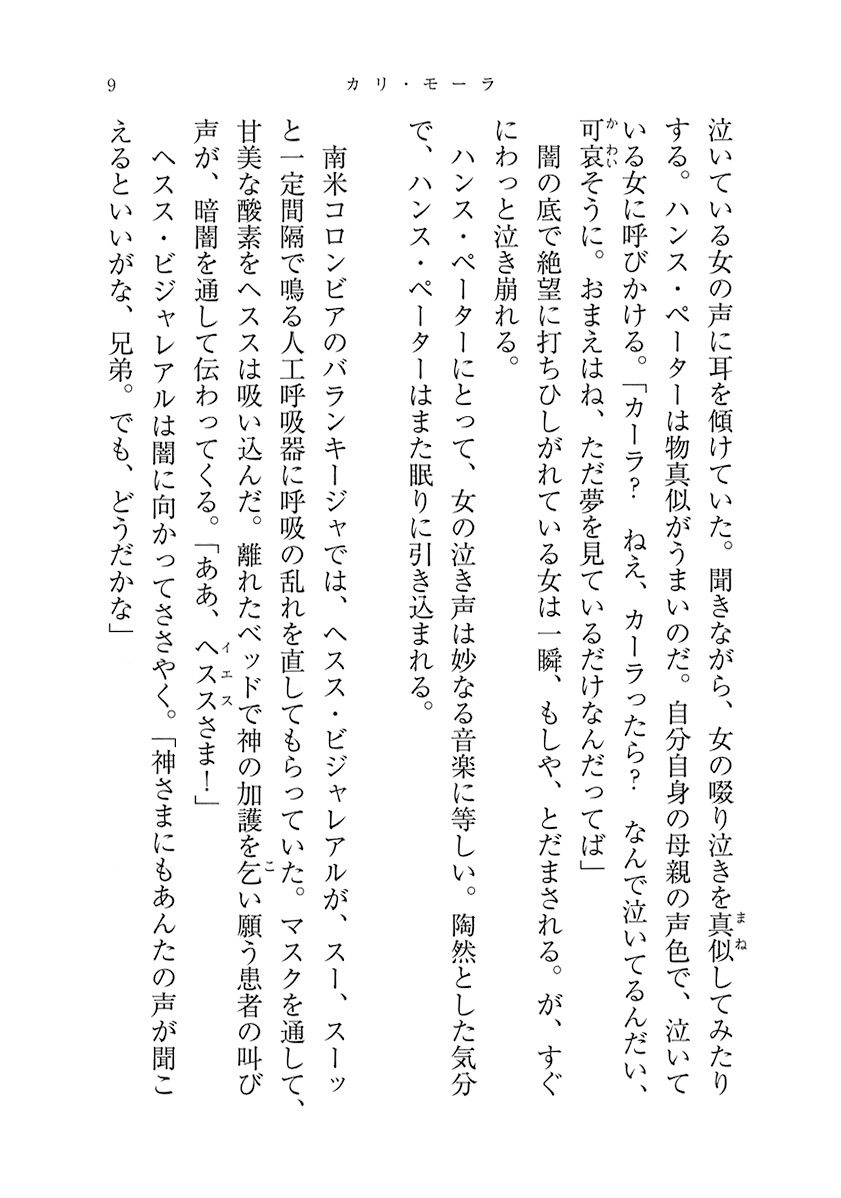 カリ・モーラ
9
泣いている女の声に耳を傾けていた。聞きながら、女の啜り泣きを真似してみたり
する。ハンス・ペーターは物真似がうまいのだ。自分自身の母親の声色で、泣いて
いる女に呼びかける。「カーラ？　ねえ、カーラったら？　なんで泣いてるんだい、
可哀そうに。おまえはね、ただ夢を見ているだけなんだってば」
　闇の底で絶望に打ちひしがれている女は一瞬、もしや、とだまされる。が、すぐ
にわっと泣き崩れる。
　ハンス・ペーターにとって、女の泣き声は妙なる音楽に等しい。陶然とした気分
で、ハンス・ペーターはまた眠りに引き込まれる。
　南米コロンビアのバランキージャでは、ヘスス・ビジャレアルが、スー、スーッ
と一定間隔で鳴る人工呼吸器に呼吸の乱れを直してもらっていた。マスクを通して、
甘美な酸素をヘススは吸い込んだ。離れたベッドで神の加護を乞い願う患者の叫び
声が、暗闇を通して伝わってくる。「ああ、ヘススさま！」
　ヘスス・ビジャレアルは闇に向かってささやく。「神さまにもあんたの声が聞こ
えるといいがな、兄弟。でも、どうだかな」
まね
かわい
こ
イエス